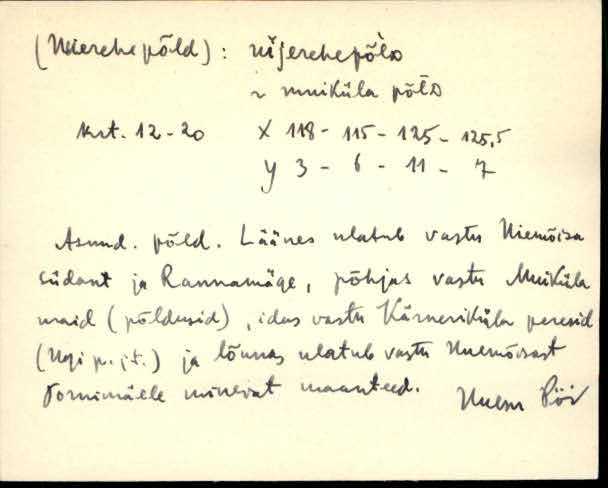 (Meierehe põld) : mi̮i̯erehepõlᴅ
~ muiküla põlᴅ
krt. 12-20 X 118 - 115 - 125 - 125,5
y 3 - 6 - 11 - 7
Asund. põld. Läänes ulatub vastu Uuemõisa
südant ja Rannamäge, põhjas vastu Muiküla
maid (põldusid), idas vastu Kärneriküla peresid
p. jt.) ja lõunas ulatub vastu Uuemõisast
Tornimäele minevat maanteed.
Pöi